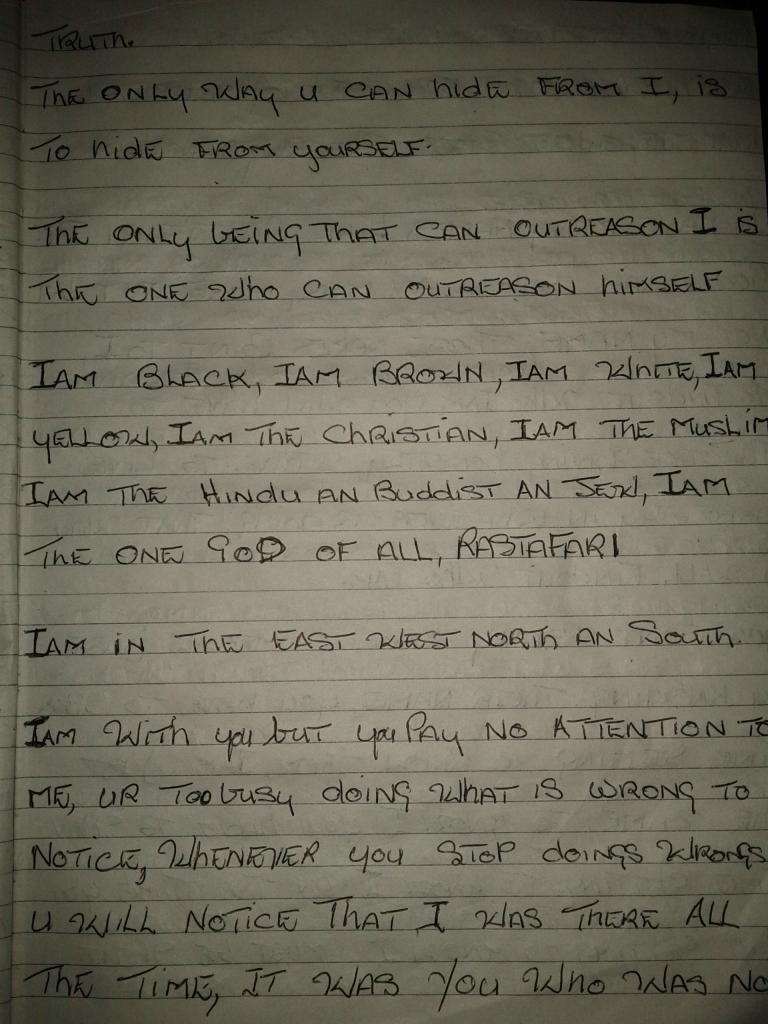 TRUTH.
THE ONLY WAY U CAN hidE FROM I, is
TO hidE FROM yOURSELF.
ThE ONLy bEING THAT CAN OUTREASON I iS
ThE ONE Who CAN OUTREASON hiMSELF
IAM BLACK, IAM BROWN, IAM WhITE, IAM
yELLOW, IAM The ChRiSTiAN, IAM THE MusLiM
IAM THE HiNdu AN BuddiST AN JEW, IAM
ThE ONE GOD OF ALL, RASTAFARI
IAM iN ThE EAST WEST NORTh AN South.
IAM With you but you PAy NO ATTENTION TO
ME, UR TOO busy doiNG WhAT iS WRONG TO
NOTiCE, WhENEVER you STOP doiNGS WRONGS
U WiLL NOTiCE ThAT I WAS ThERE ALL
ThE TiME, IT WAS YOU Who WAS NO